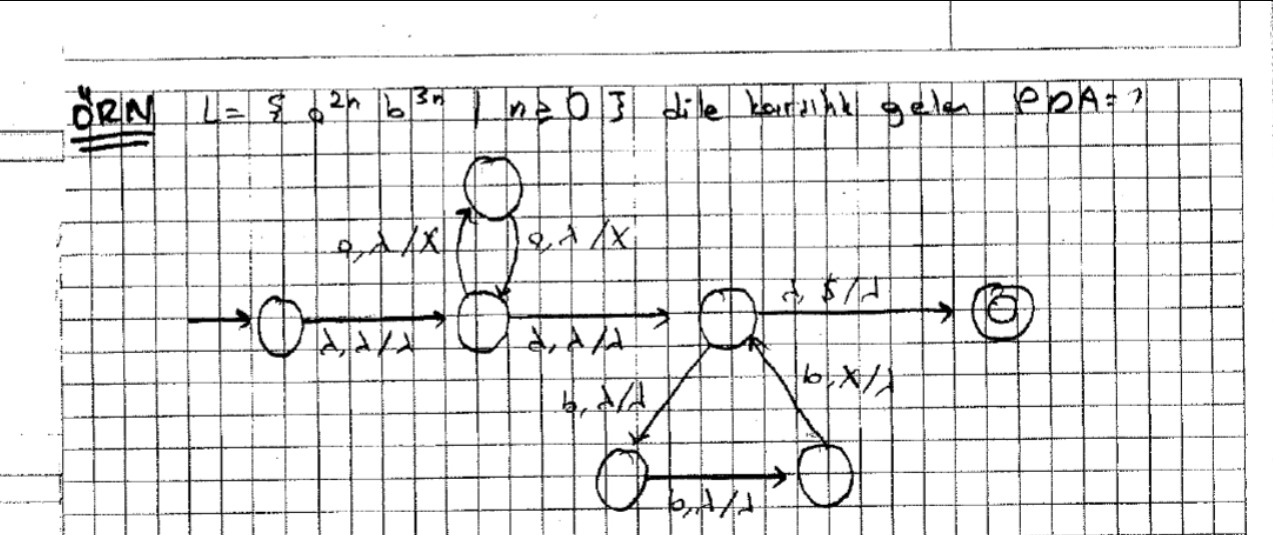 ÖRN L = { a^2n b^3n | n ≥ 0 } dile karşılık gelen PDA = ?
a, λ/X a, λ/X
λ, λ/λ λ, λ/λ λ, $/λ
b, λ/λ b, X/λ
b, λ/λ